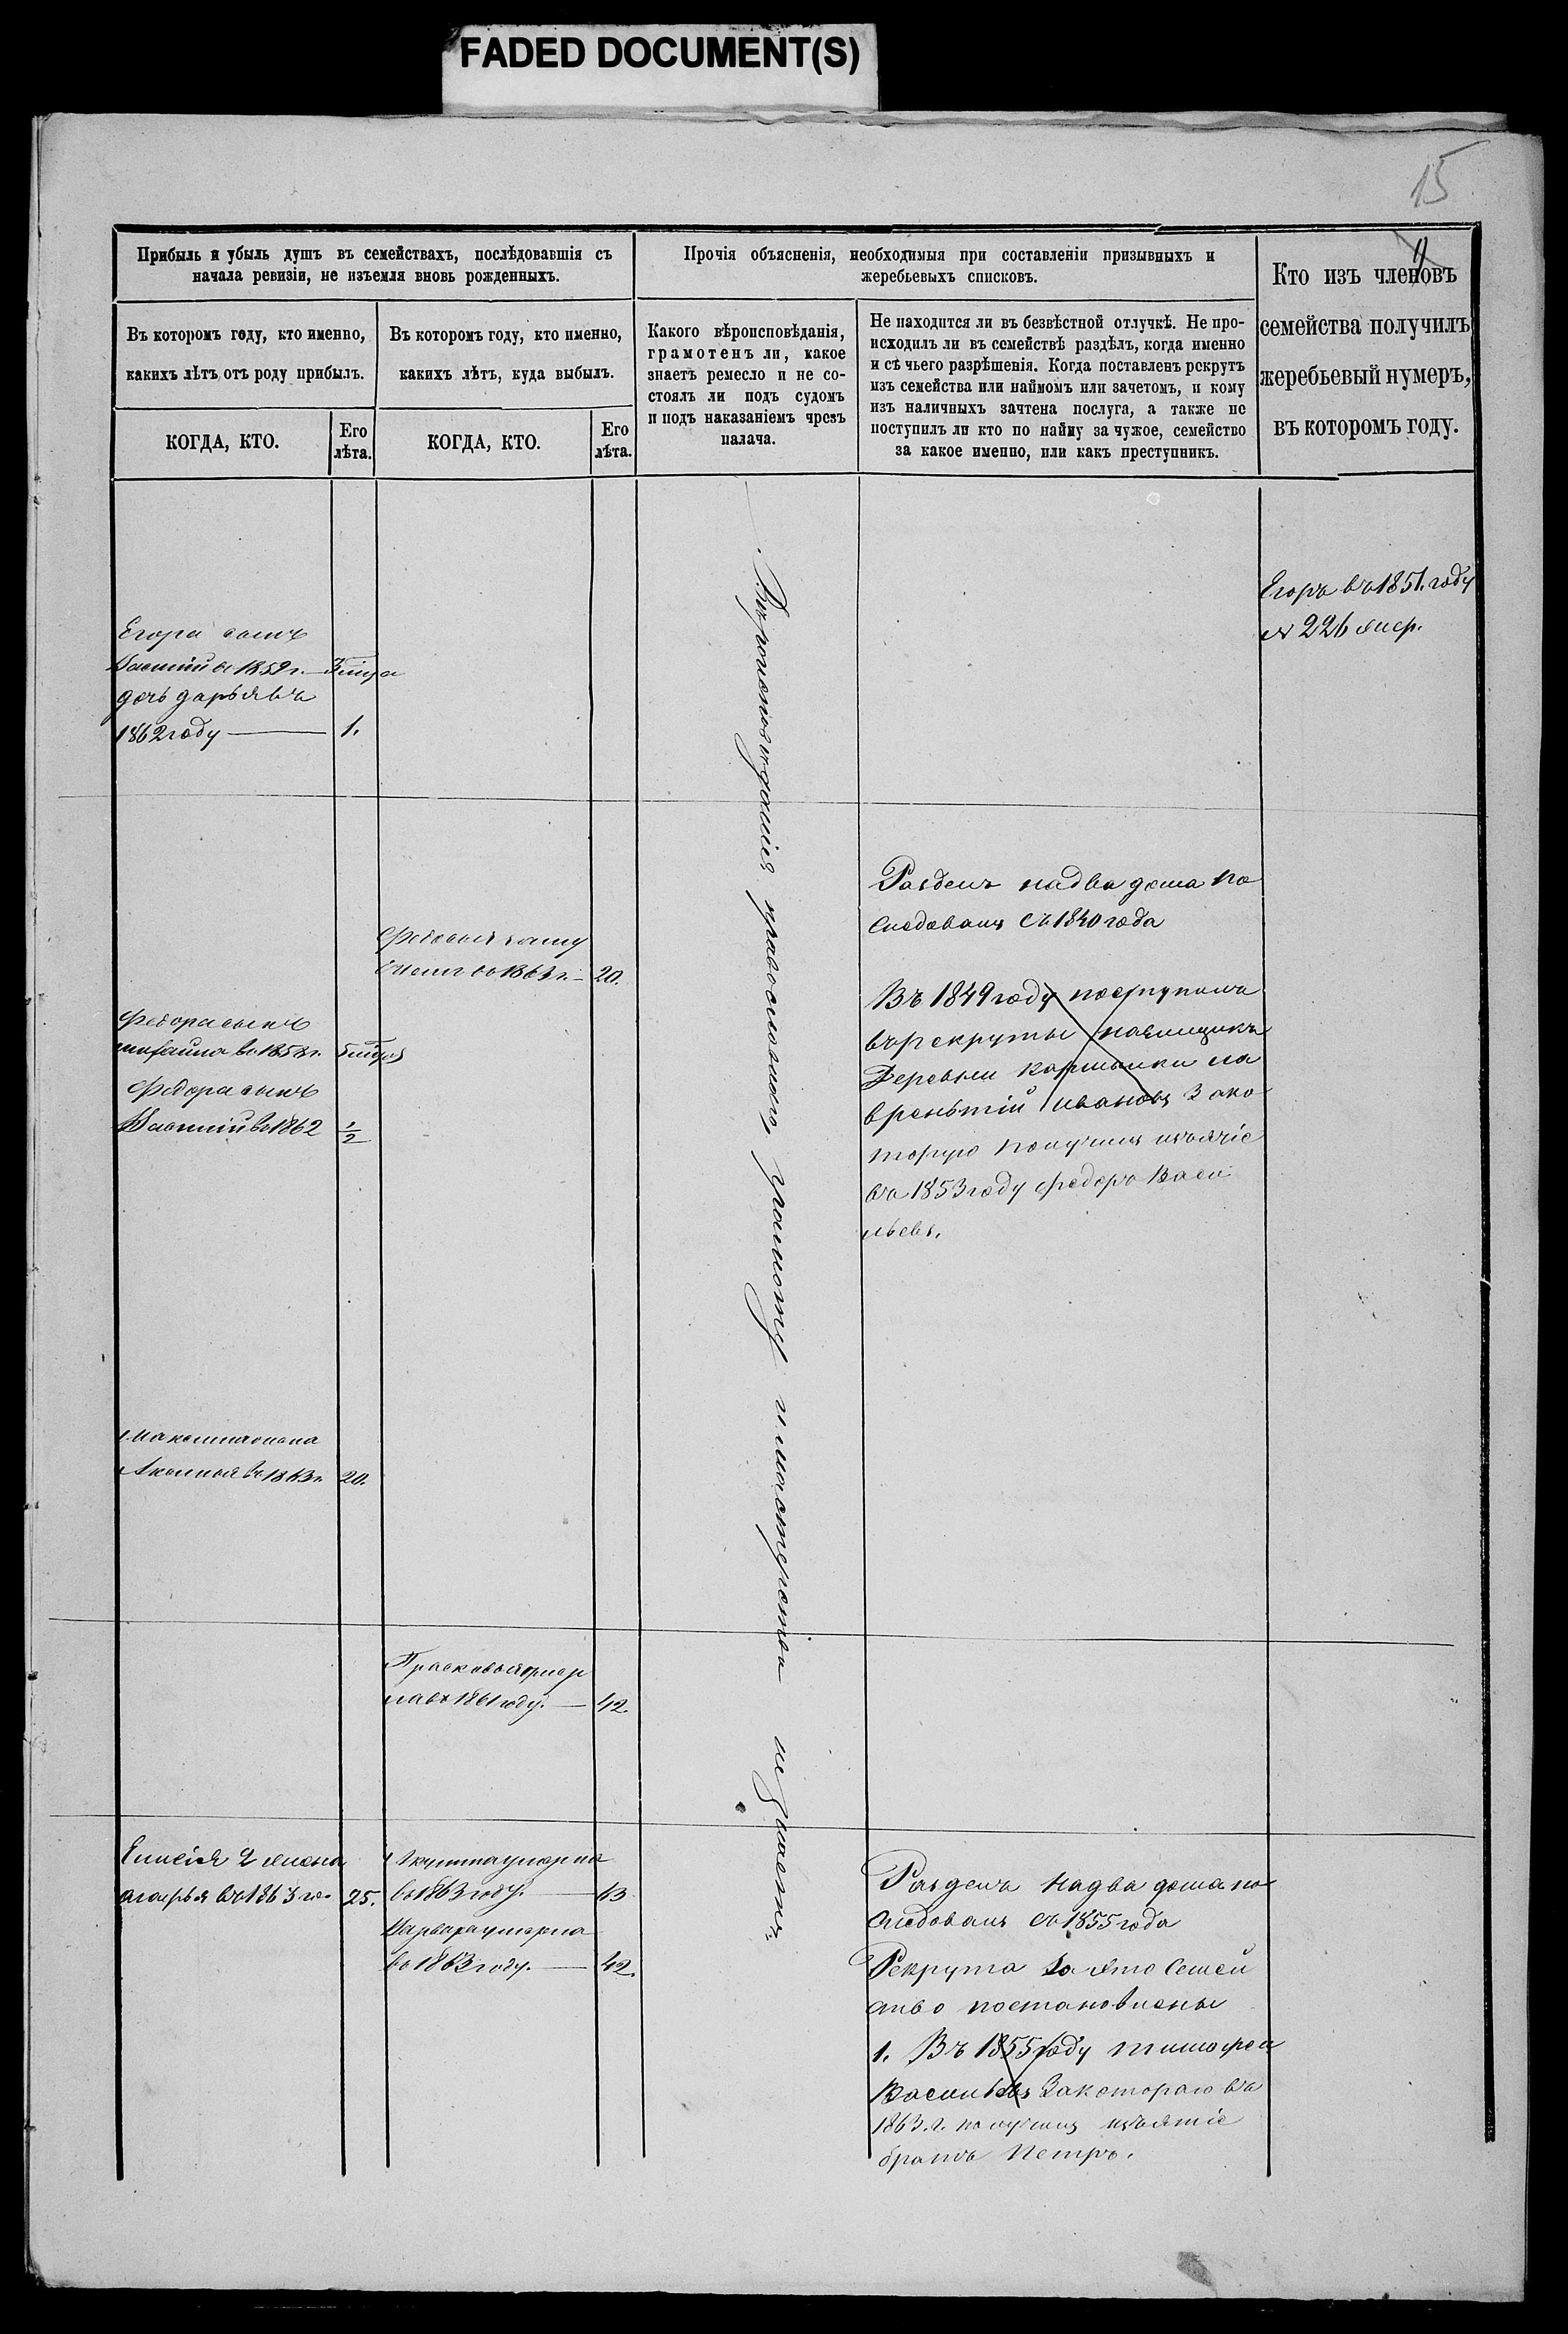 FADED DOCUMENT(S)
15
11
Прибыль и убыль душъ въ семействахъ, послѣдовавшія съ
начала ревизіи, не изъемля вновь рожденныхъ.
Въ которомъ году, кто именно,
какихъ лѣтъ отъ роду прибылъ.
КОГДА, КТО.
Его
лѣта.
Въ которомъ году, кто именно,
какихъ лѣтъ, куда выбылъ.
КОГДА, КТО.
Его
лѣта.
Прочія объясненія, необходимыя при составленіи призывныхъ и
жеребьевыхъ списковъ.
Какого вѣроисповѣданія,
грамотенъ ли, какое
знаетъ ремесло и не со-
стоялъ ли подъ судомъ
и подъ наказаніемъ чрезъ
палача.
Не находится ли въ безвѣстной отлучкѣ. Не про-
исходилъ ли въ семействѣ раздѣлъ, когда именно
и съ чьего разрѣшенія. Когда поставленъ рекрутъ
изъ семейства или наймомъ или зачетомъ, и кому
изъ наличныхъ зачтена послуга, а также не
поступилъ ли кто по найму за чужое, семейство
за какое именно, или какъ преступникъ.
Кто изъ членовъ
семейства получилъ
жеребьевый нумеръ,
въ которомъ году.
Егоръ въ 1851. году
№ 226
Егора сынъ
въ 1859 г.
дочь дарья въ
1862 году — 1.
Вероисповеданія православнаго, грамоту и мастерства не знаетъ.
Разделъ надва дома по
следовалъ съ 1840 года
въ 1863 г. — 20.
Въ 1849 году поступилъ
врекруты наемщикъ
Деревни
Ивановъ Зако
торую получилъ изъятіе
въ 1853 году федоръ Васи
льевъ.
Федора сынъ
михаила въ 1858 г.
Федора сынъ
Василій въ 1862 1/2
въ 1863 г. 20.
Прасковья умер
ла въ 1861 году. — 42.
Елисія 2 жена
въ 1863 го 25.
умерла
въ 1863 году. — 63
Варвара умерла
въ 1863 году. — 42.
Разделъ надва дома по
следовалъ съ 1855 года
Рекрута за это семей
ство постановлены
1. Въ 1855 году тимофей
Васильевъ Закотораго въ
1863. г. получилъ изъятіе
братъ Петръ.